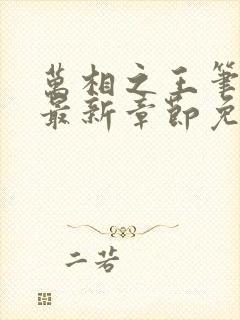 萬相之王筆
最新章節免
二若